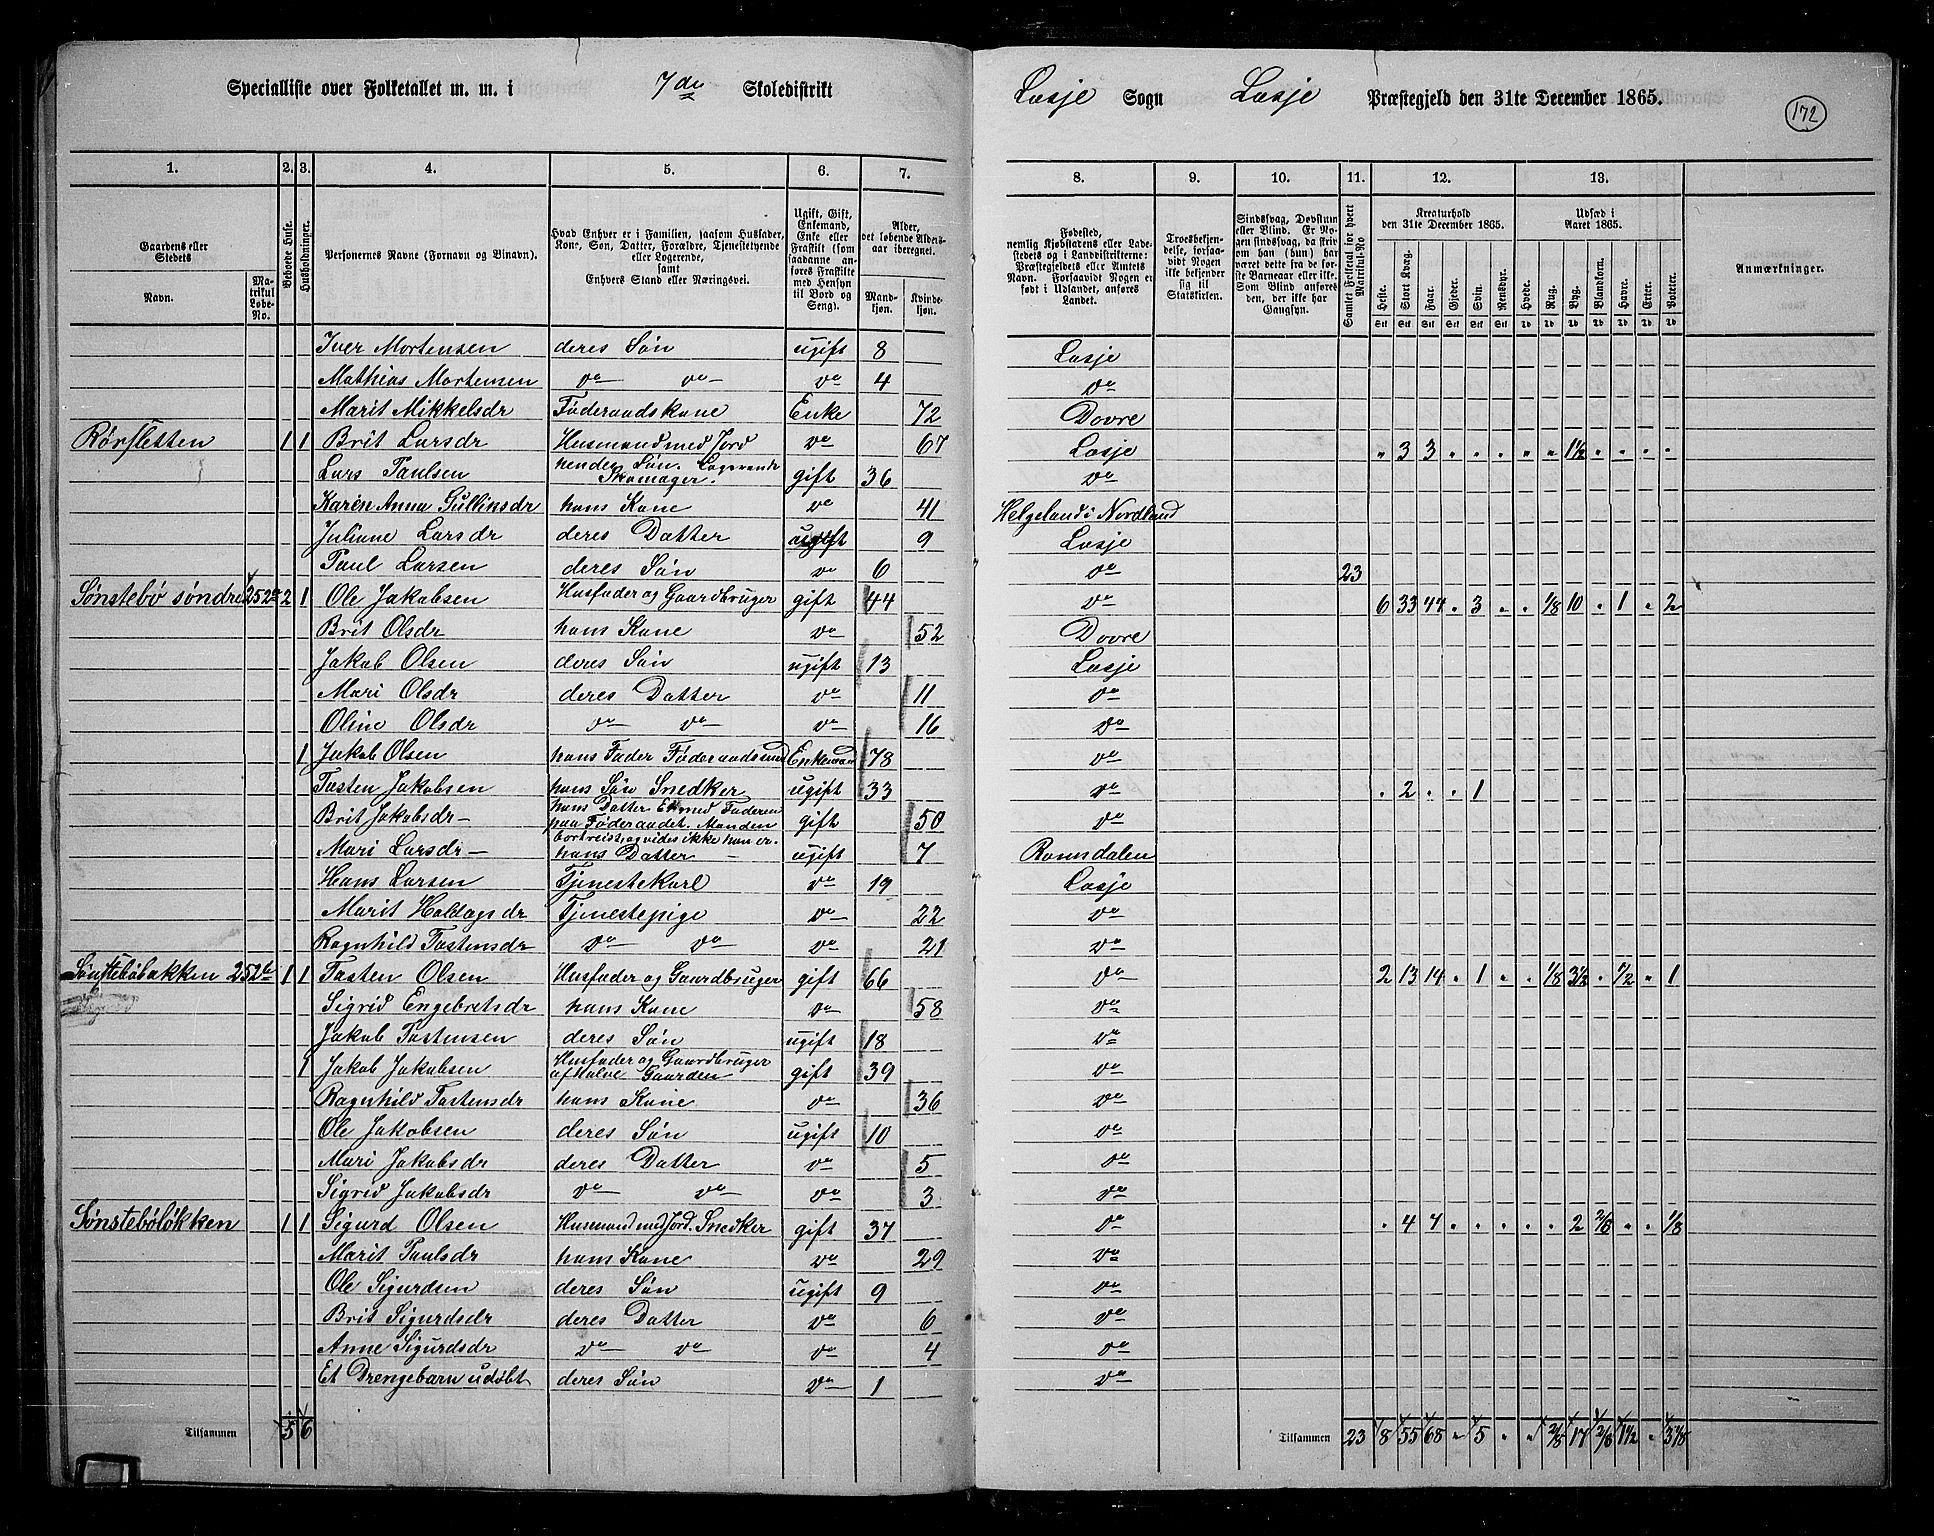 Specialliste over Folketallet m. m. i 7de Skoledistrikt
Lesje Sogn Lesje Præstegjeld den 31te December 1865.
172
1. 2. 3. 4. 5. 6. 7. 8. 9. 10. 11. 12. 13.
Gaardens eller Stedets
Navn.
Matrikul Løbe-No.
Beboede Huse.
Husholdninger.
Personernes Navne (Fornavn og Tilnavn).
Hvad Enhver er i Familien, saasom Husfader, Kone, Søn, Datter, Forældre, Tjenestetyende eller Logerende, samt Enhvers Stand eller Næringsvei.
Ugift, Gift, Enkemand, Enke eller Fraskilt (som saadanne anføres Fraskilte med Hensyn til Bord og Seng).
Alder, det løbende Alders-aar iberegnet.
Mandkjøn.
Kvindekjøn.
Fødested, nemlig Kjøbstadens eller Ladestedets og i Landdistrikterne: Præstegjeldets eller Amtets Navn. Forsaavidt Nogen er født i Udlandet, anføres Landet.
Troesbekjendelse, forsaavidt Nogen ikke bekjender sig til Statskirken.
Sindssvag, Døvstum eller Blind. Er Nogen sindssvag, da skriv om han (hun) har været dette fra de første Barneaar eller ikke. Som Blind anføres den, der ikke har Gangsyn.
Samlet Folketal for hvert Matrikul-No
Kreaturhold den 31te December 1865.
Heste. Stort Kvæg. Faar. Gjeder. Svin. Rensdyr.
Udsæd i Aaret 1865.
Hvede. Rug. Byg. Blandkorn. Havre. Erter. Poteter.
Anmærkninger.
Iver Mortensen deres Søn ugift 8 Lesje
Mathias Mortensen do do do 4 do
Marit Mikkelsdr Føderaadskone Enke 72 Dovre
Rørsletten 1 1 Brit Larsdr Husmand med Jord do 67 Lesje " 3 3 " " " " " 1½ " " " "
Lars Paulsen hendes Søn. Logerende Skomager. gift 36 do
Karen Anna Gullinsdr hans Kone do 41 Helgeland i Nordland
Juliane Larsdr deres Datter ugift 9 Lesje
Paul Larsen deres Søn do 6 do 23
Sønstebø søndre 252a 2 1 Ole Jakobsen Husfader og Gaardbruger gift 44 do 6 33 44 " 3 " " 1/8 10 " 1 " 2
Brit Olsdr hans Kone do 52 Dovre
Jakob Olsen deres Søn ugift 13 Lesje
Mari Olsdr deres Datter do 11 do
Oline Olsdr do do do 16 do
1 Jakob Olsen hans Fader Føderaadsmand Enkemand 78 do
Tosten Jakobsen hans Søn Snedker ugift 33 do " 2 " " 1
Brit Jakobsdr hans Datter Er med Faderen paa Føderaadet. Manden bortreist, og vides ikke hvor han er. gift 50 do
Mari Larsdr hans Datter ugift 7 Romsdalen
Hans Larsen Tjenestekarl do 19 Lesje
Marit Haldogsdr Tjenestepige do 22 do
Ragnhild Tostensdr do do do 21 do
Sønstebøbakken 252b 1 1 Tosten Olsen Husfader og Gaardbruger gift 66 do 2 13 14 " 1 " " 1/8 3½ " ½ " 1
Sigrid Engebretsdr hans Kone do 58 do
Jakob Tostensen deres Søn ugift 18 do
1 Jakob Jakobsen Husfader og Gaardbruger af halve Gaarden gift 39 do
Ragnhild Tostensdr hans Kone do 36 do
Ole Jakobsen deres Søn ugift 10 do
Mari Jakobsdr deres Datter do 5 do
Sigrid Jakobsdr do do do 3 do
Sønstebøløkken 1 1 Sigurd Olsen Husmand med Jord. Snedker gift 37 do " 4 7 " " " " " 2 2/8 " " 1/8
Marit Paulsdr hans Kone do 29 do
Ole Sigurdsen deres Søn ugift 9 do
Brit Sigurdsdr deres Datter do 6 do
Anne Sigurdsdr do do do 4 do
Et Drengebarn udøbt deres Søn do 1 do
Tilsammen 5 6
Tilsammen 23 8 55 68 " 5 " " 2/8 17 2/8 1½ " 3 1/8